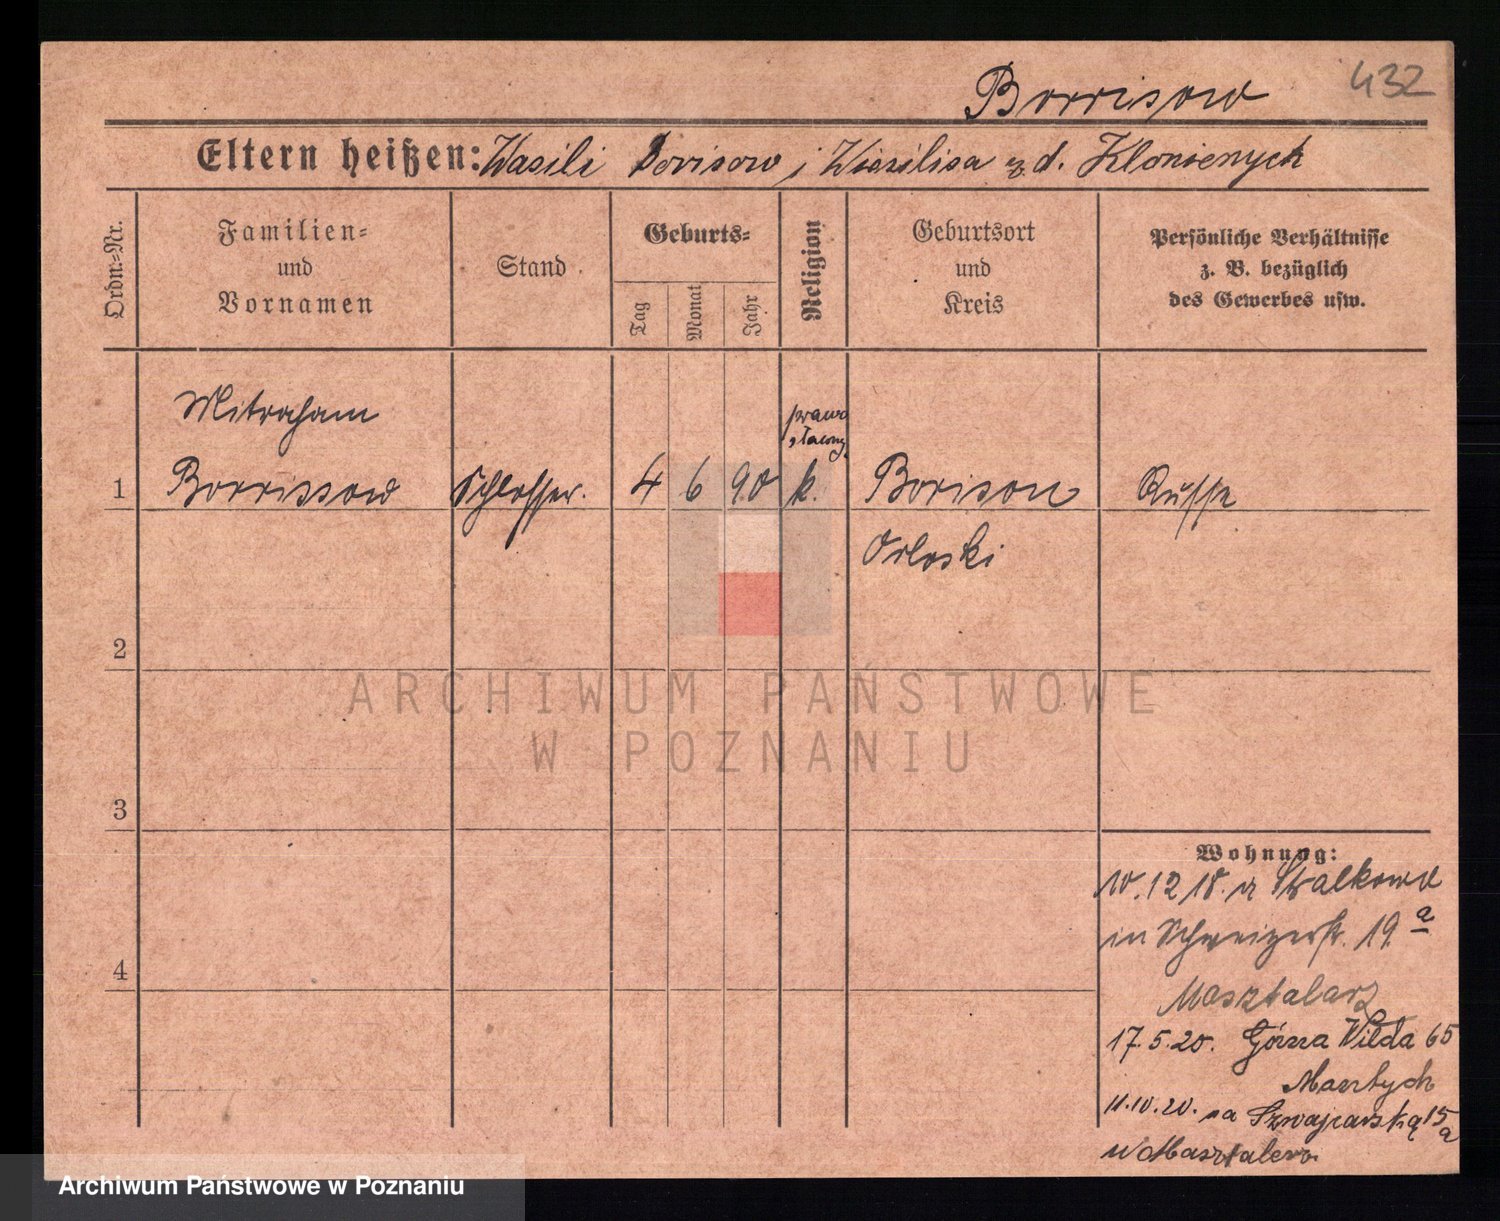 Borrisow 432
Eltern heißen: Wasili Borisow i Wasilisa z d. Klonienych
Ordn.-Nr.
Familien-
und
Vornamen
Stand
Geburts-
Tag
Monat
Jahr
Religion
Geburtsort
und
Kreis
Persönliche Verhältnisse
z. B. bezüglich
des Gewerbes usw.
Mitroham
prawo
sławny
1 Borrissow Schlosser. 4 6 90 k. Borison Russe
Orloski
2
3
4
Wohnung:
10.12.18. a Stalkowo
in Schweizerstr. 19.a
Masztalarz
17.5.20. Górna Wilda 65
11.10.20. na Szwajcarską 15a
u Masztalerz
ARCHIWUM PAŃSTWOWE
W POZNANIU
Archiwum Państwowe w Poznaniu